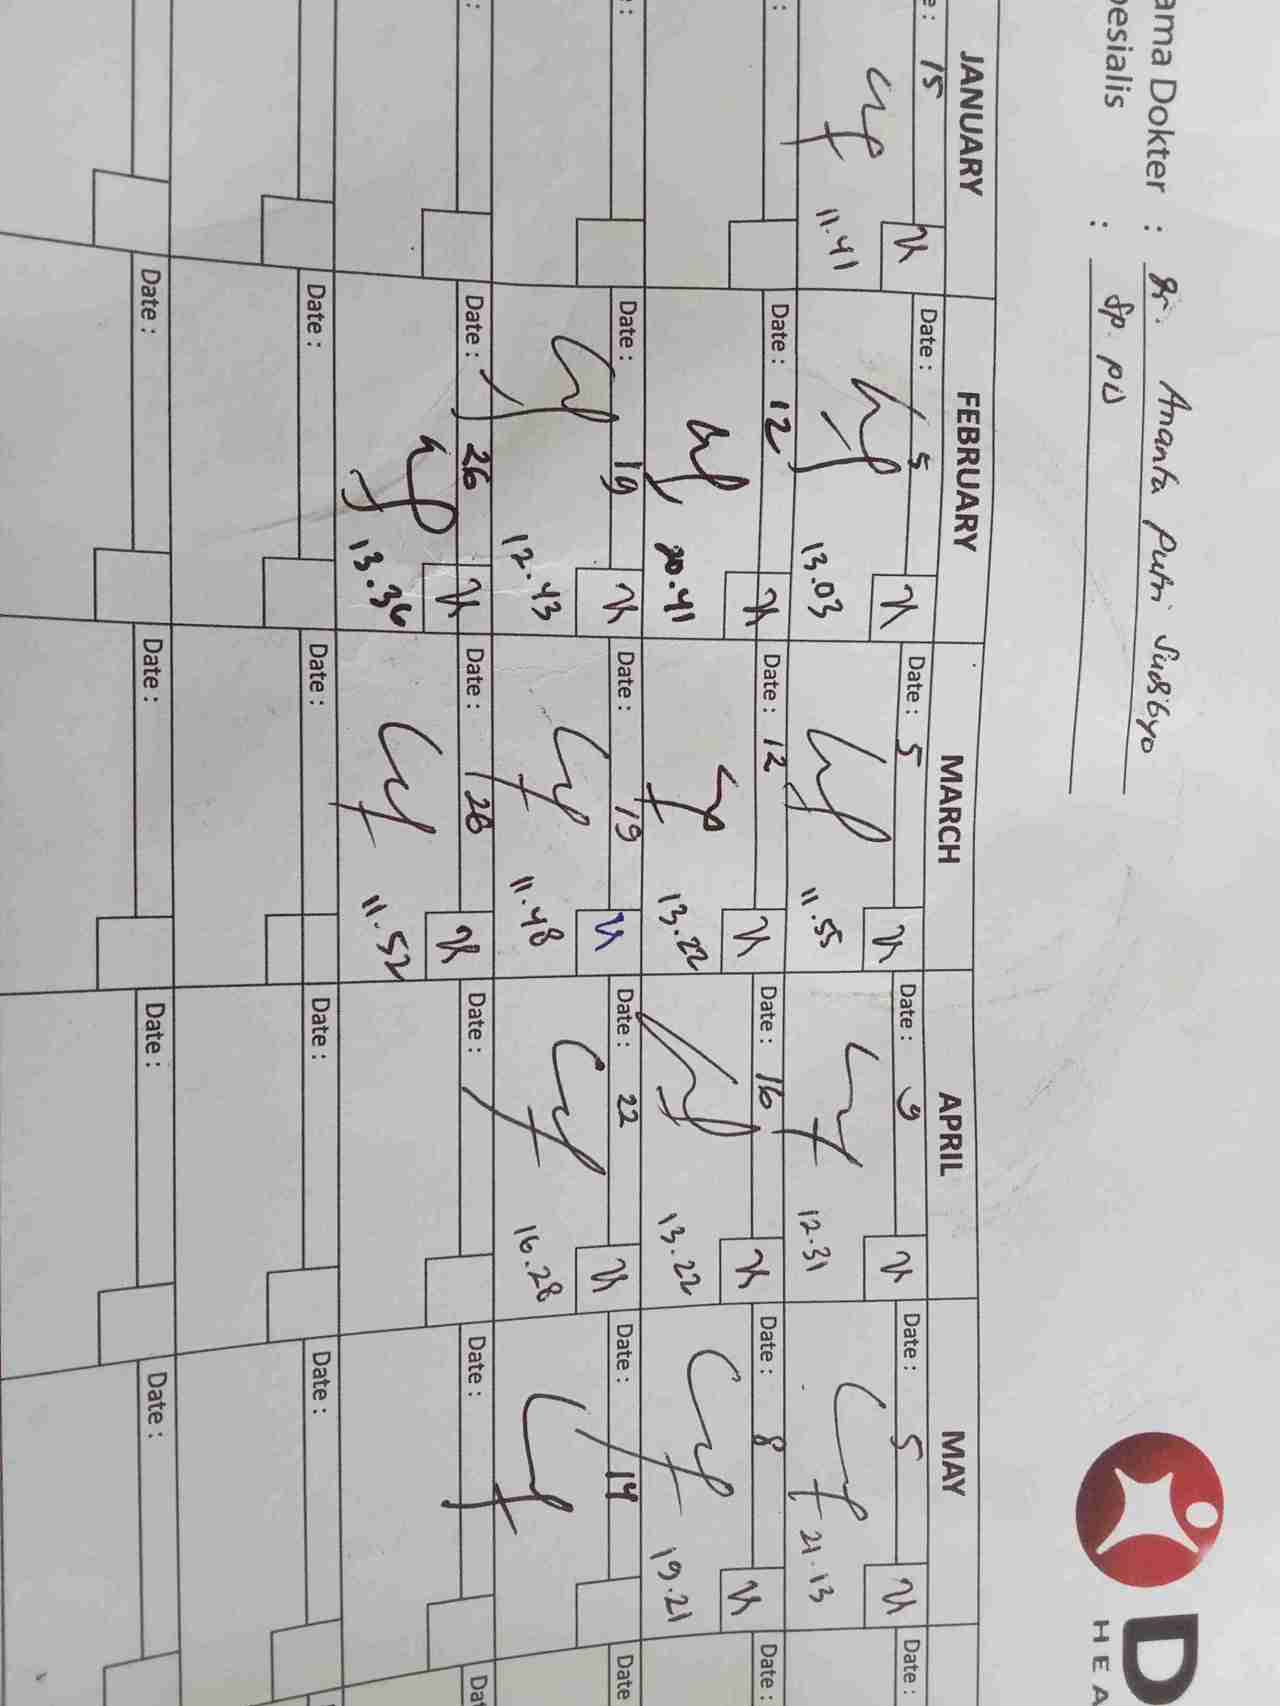 ama Dokter : dr. Ananta Putri Sudibyo
pesialis : Sp. PD
D
HEA
JANUARY FEBRUARY MARCH APRIL MAY
e : 15 Date : 5 Date : 5 Date : 9 Date : 5 Date :
11.41 13.03 11.55 12.31 21.13
: Date : 12 Date : 12 Date : 16 Date : 8 Date :
20.41 13.22 13.22 19.21
: Date : 19 Date : 19 Date : 22 Date : 14 Date
12.43 11.48 16.28
: Date : 26 Date : 26 Date : Date : Dat
13.36 11.52
Date : Date : Date : Date :
Date : Date : Date : Date :